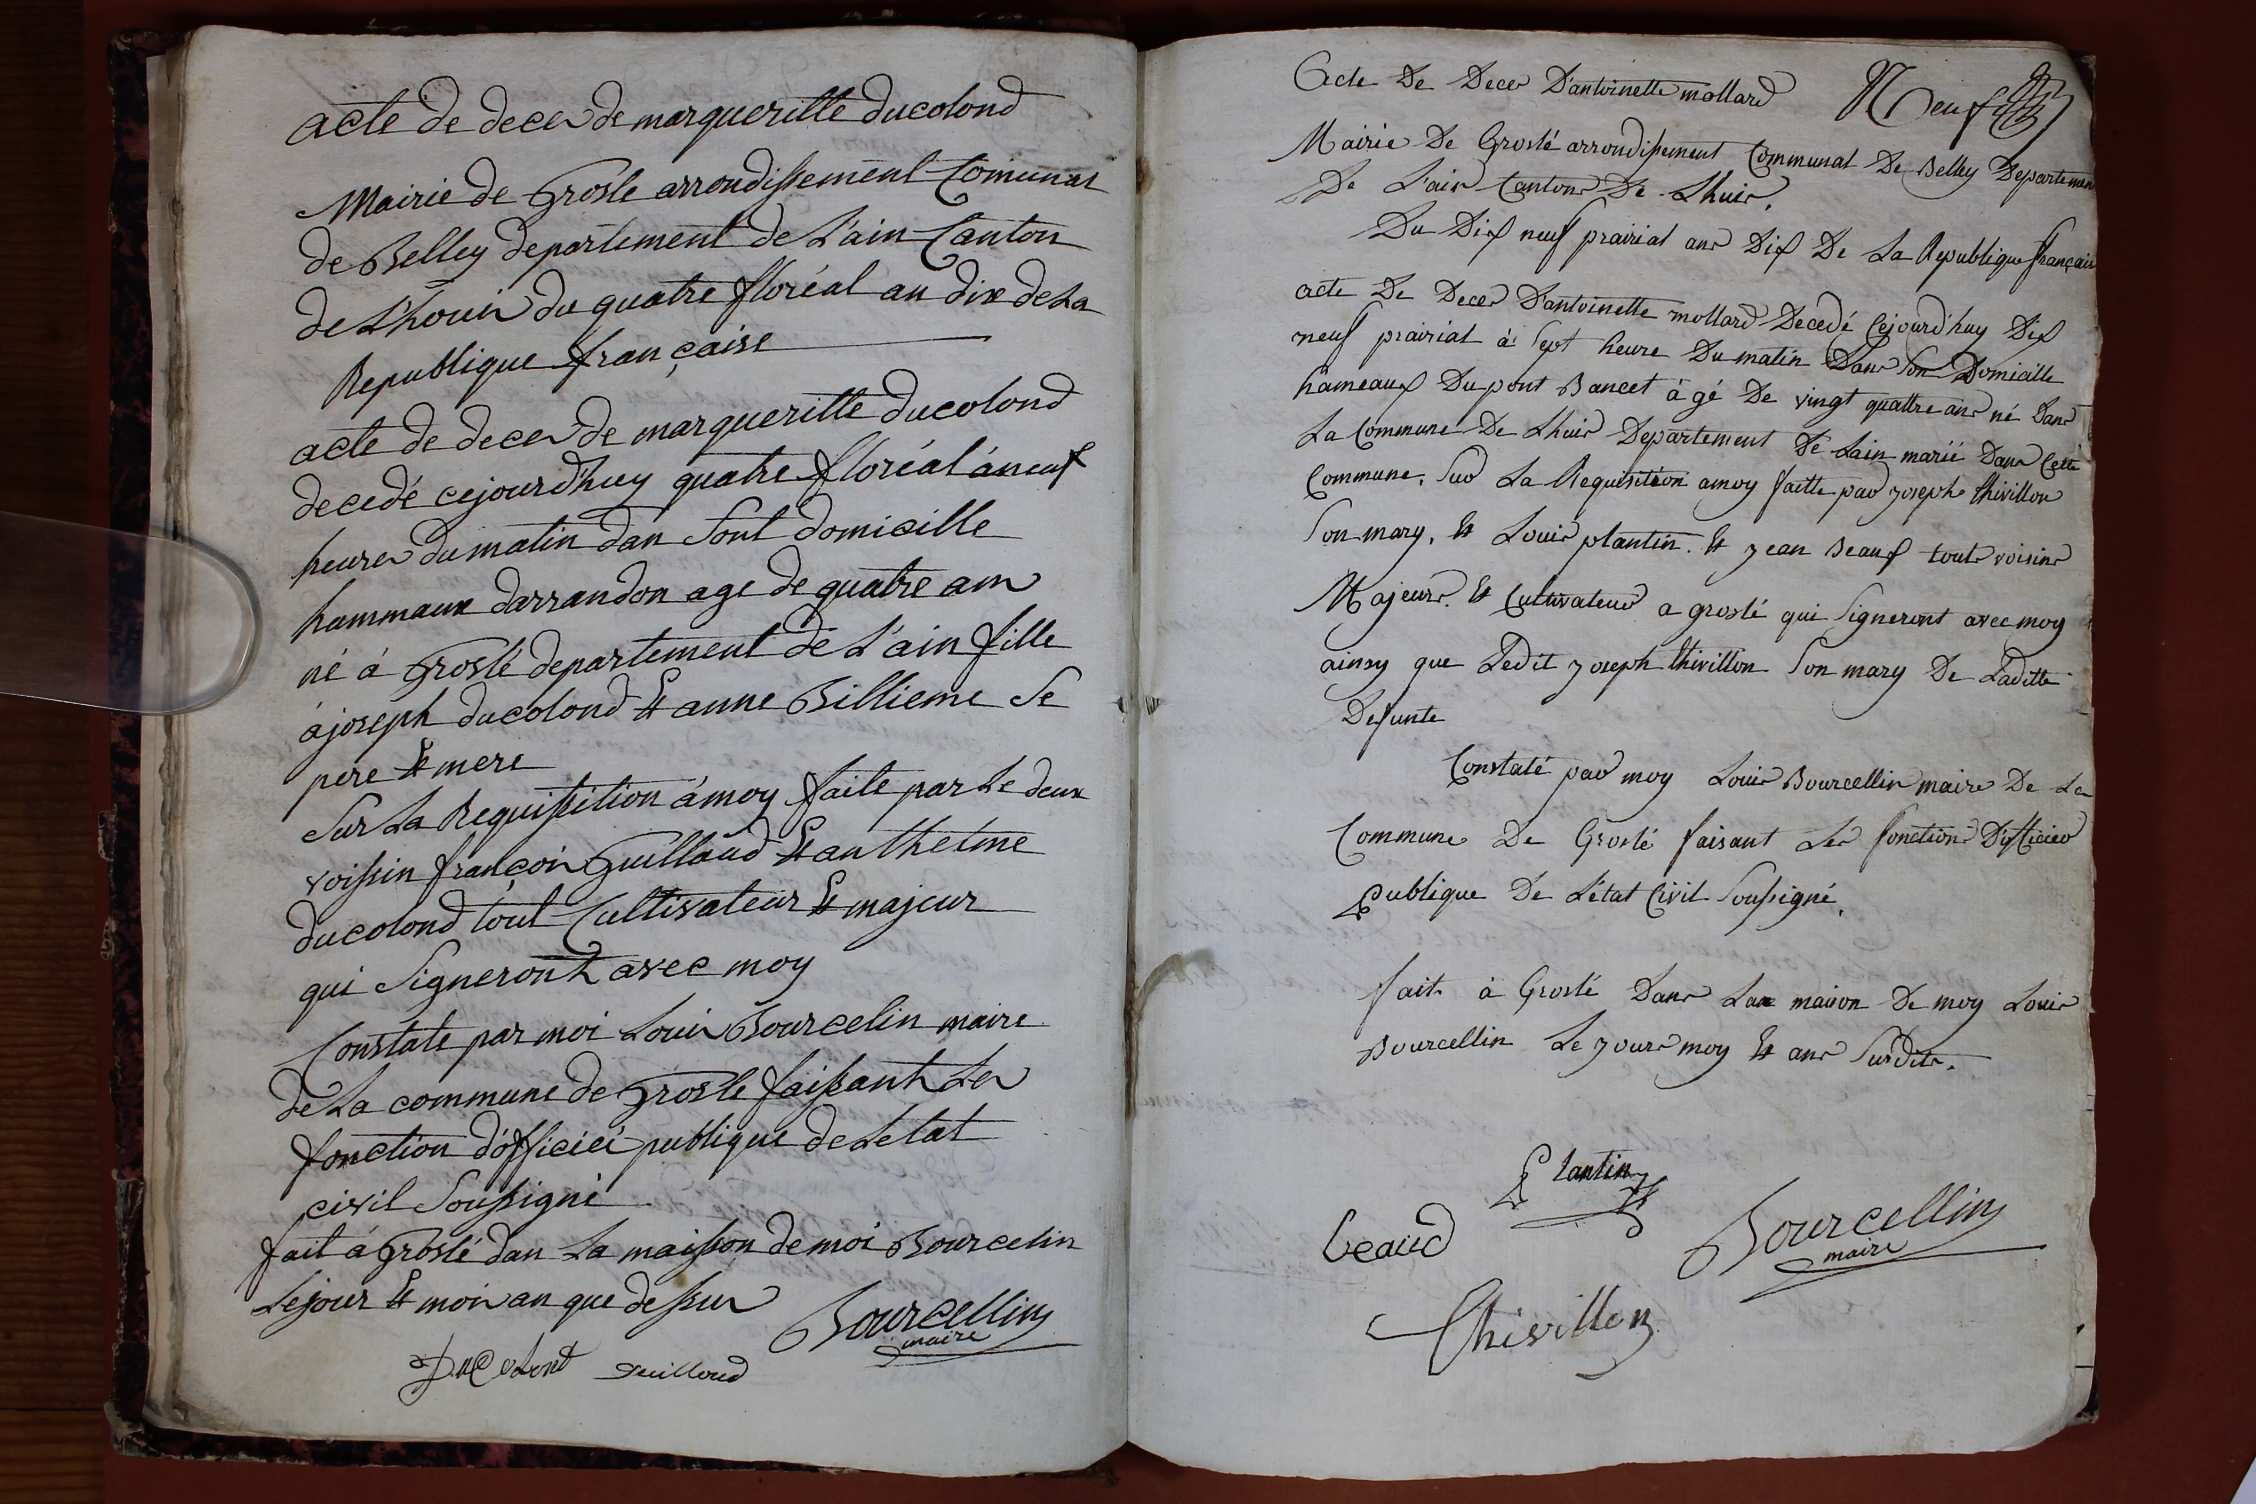 acte de deces de margueritte ducolond
Mairie de Groslé arrondissement Comunal
de Belley departement de L'ain Canton
de L'houis du quatre floréal an dix de La
Republique française
acte de deces de margueritte ducolond
decedé cejourd'huy quatre floréal à neuf
heures du matin dan Sont domicille
hammaux darrandon age de quatre ans
né à Groslé departement de L'ain fille
à joseph ducolond et anne Billieme Se
pere et mere
Sur La Requissition à moy faite par Le deux
voissin françois Guillaud et anthelme
ducolond tout Cultivateur et majeur
qui Signeront avec moy
Constate par moi Louis Bourcelin maire
de La commune de Grosle faissant Les
fonction d'officiei publique de Letat
civil Soussigné
fait à Groslé dan La maisson de moi Bourcelin
Le jour et mois an que dessus
Bourcellin
maire
DuColont Guilloud
Acte De Deces D'antoinette mollard
Neuf
Mairie De Groslé arrondissement Communal De Belley Departemen
De L'ain Canton De Lhuis.
Du Dix neuf prairial ans Dix De La Republique français
acte De Deces D'antoinette mollard Decedé Cejourd'huy Dix
neuf prairial à Sept heure Du matin Dans Son Domicille
hameaux Du pont Bancet à gé De vingt quattre ans né Dans
La Commune De Lhuis Departement De Lain marié Dans Cette
Commune. Sur La Requisition amoy faitte par joseph thivillon
Son mary. et Louis plantin. et jean Beauf touts voisins
Majeurs. et Cultivateur a groslé qui Signeront avec moy
ainsy que Ledit joseph thivillon Son mary De Laditte
Defunte
Constaté par moy Louis Bourcellin maire De La
Commune De Groslé faisant Les fonctions D'officier
Publique De L'état Civil Soussigné.
fait à Groslé Dans La maison De moy Louis
Bourcellin Le jours moy et ans Susdits.
Plantin
Beaud
Bourcellin
maire
Thivillon